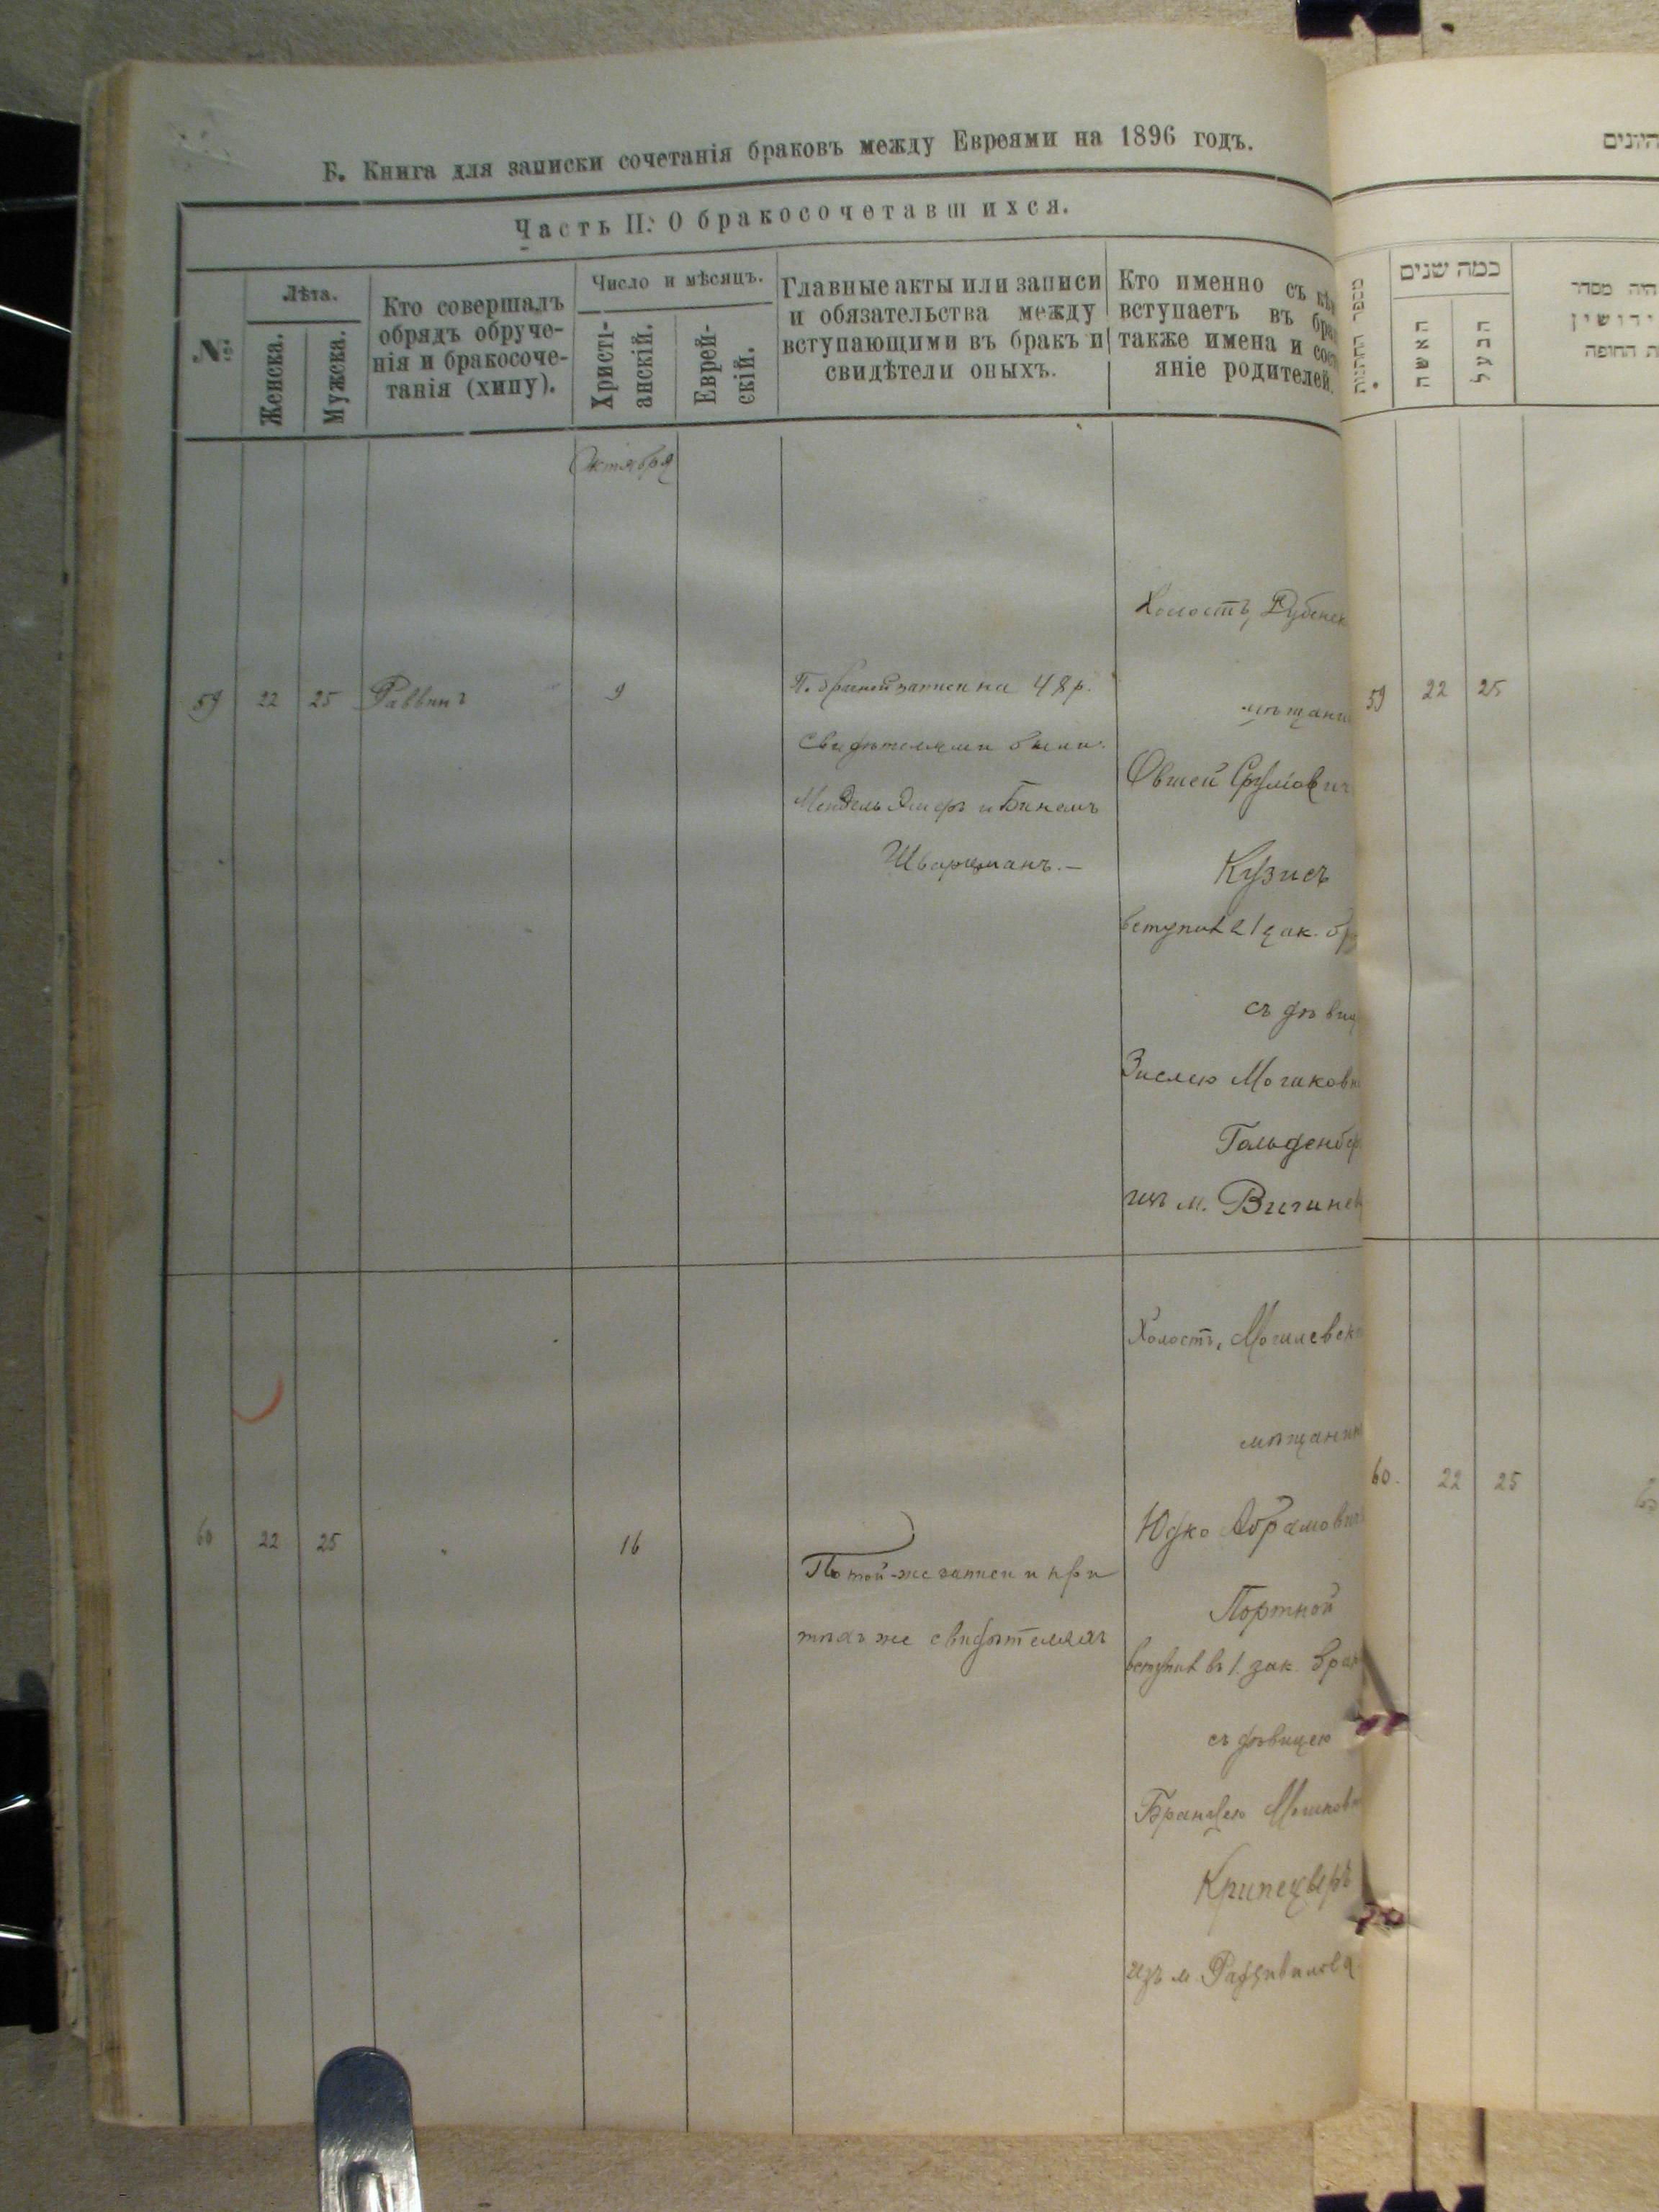 Б. Книга для записки сочетанія браковъ между Евреями на 1896 годъ.
Часть II. О бракосочетавшихся.
№
Лѣта.
Женска.
Мужска.
Кто совершалъ
обрядъ обруче-
нія и бракосоче-
танія (хипу).
Число и мѣсяцъ.
Христі-
анскій.
Еврей-
скій.
Главные акты или записи
и обязательства между
вступающими въ бракъ и
свидѣтели оныхъ.
Кто именно съ
вступаетъ въ
также имена и
яніе родителей.
Октября
59 22 25 Раввинъ 9
По брачной записи на 48 р.
Свидѣтелями были:
Мендель и Бинемъ
Шварцманъ.—
Холостъ,
Овшей Срулович
Кузисъ
вступил в 1 зак.
съ
Зислею
из м.
60 22 25 16
По той-же записи и при
тѣхъ же свидѣтеляхъ
Холостъ, Могилевск
мѣщанин
Юдко Абрамович
Портной
вступил въ 1. зак. брак
съ дѣвицею
из м. Радзивилова
כמה שנים
האשה
הבעל
היה מסדר
59 22 25
60. 22 25